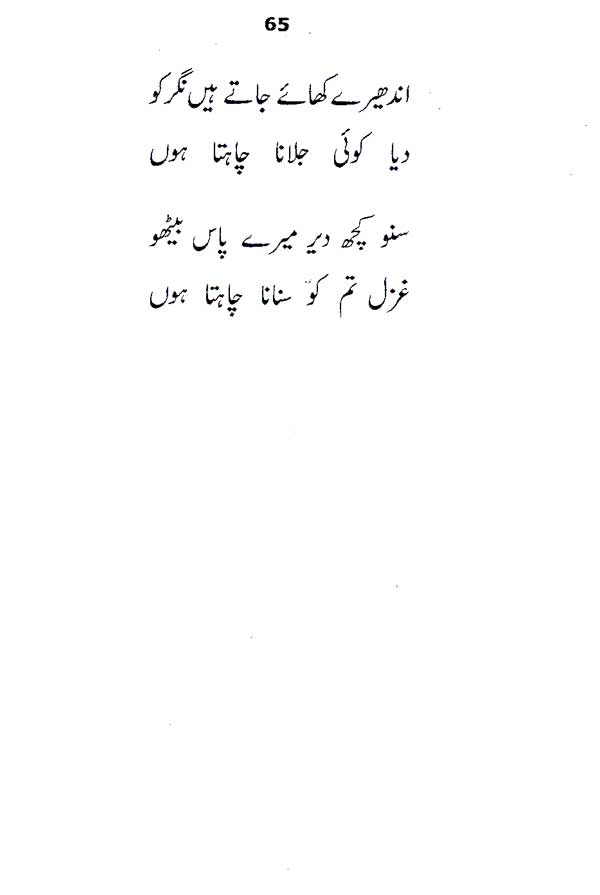 65
اندھیرے کھائے جاتے ہیں نگر کو
دیا کوئی جلانا چاہتا ہوں
سنو کچھ دیر میرے پاس بیٹھو
غزل تم کو سنانا چاہتا ہوں